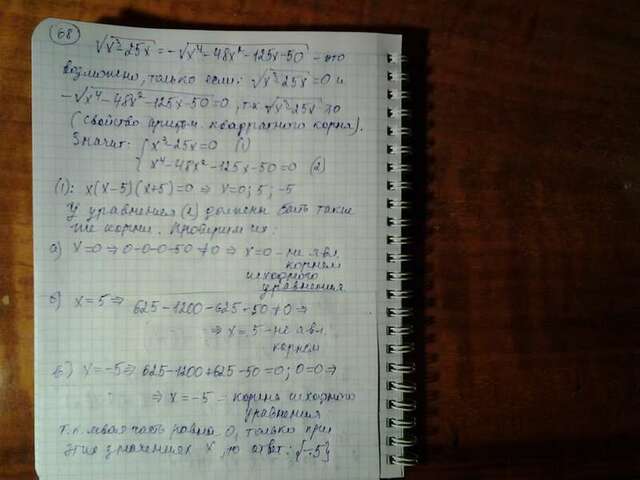 68
√x³-25x = -√x⁴-48x²-125x-50 - это
возможно, только если: √x³-25x = 0 и
-√x⁴-48x²-125x-50 = 0, т.к √x³-25x ≥0
(свойство арифм. квадратного корня).
Значит: { x³-25x=0 (1)
{ x⁴-48x²-125x-50=0 (2)
(1): x(x-5)(x+5)=0 ⇒ x=0; 5; -5
У уравнения (2) должны быть такие
же корни. Проверим их:
а) x=0 ⇒ 0-0-0-50≠0 ⇒ x=0 - не явл.
корнем
исходного
уравнения
б) x=5 ⇒ 625-1200-625-50≠0 ⇒
⇒ x=5 - не явл.
корнем
в) x=-5 ⇒ 625-1200+625-50=0; 0=0 ⇒
⇒ x=-5 - корень исходного
уравнения
т.к. левая часть равна 0, только при
этих значениях x, то ответ: {-5}